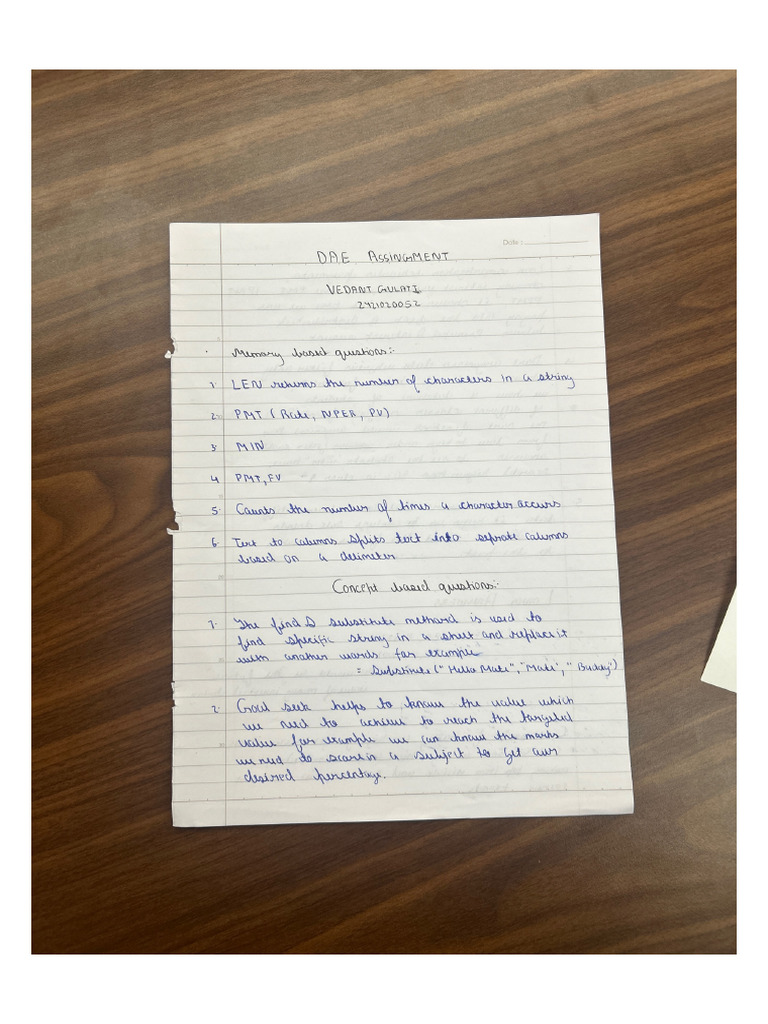 Date:
DAE ASSINGMENT
VEDANT GULATI
2421020052
Memory based questions:-
1. LEN returns the number of characters in a string
2. PMT (Rate, NPER, PV)
3. MIN
4. PMT, FV
5. Counts the number of times a character occurs
6. Text to columns splits text into seprate columns
based on a delimeter
Concept based questions:-
1. The find & substitute method is used to
find specific string in a sheet and replace it
with another words for example
= Substitute ("Hello Mate", "Mate", "Buddy")
2. Goal seek helps to know the value which
we need to achieve to reach the targeted
value for example we can know the marks
we need to score in a subject to get our
desired percentage.